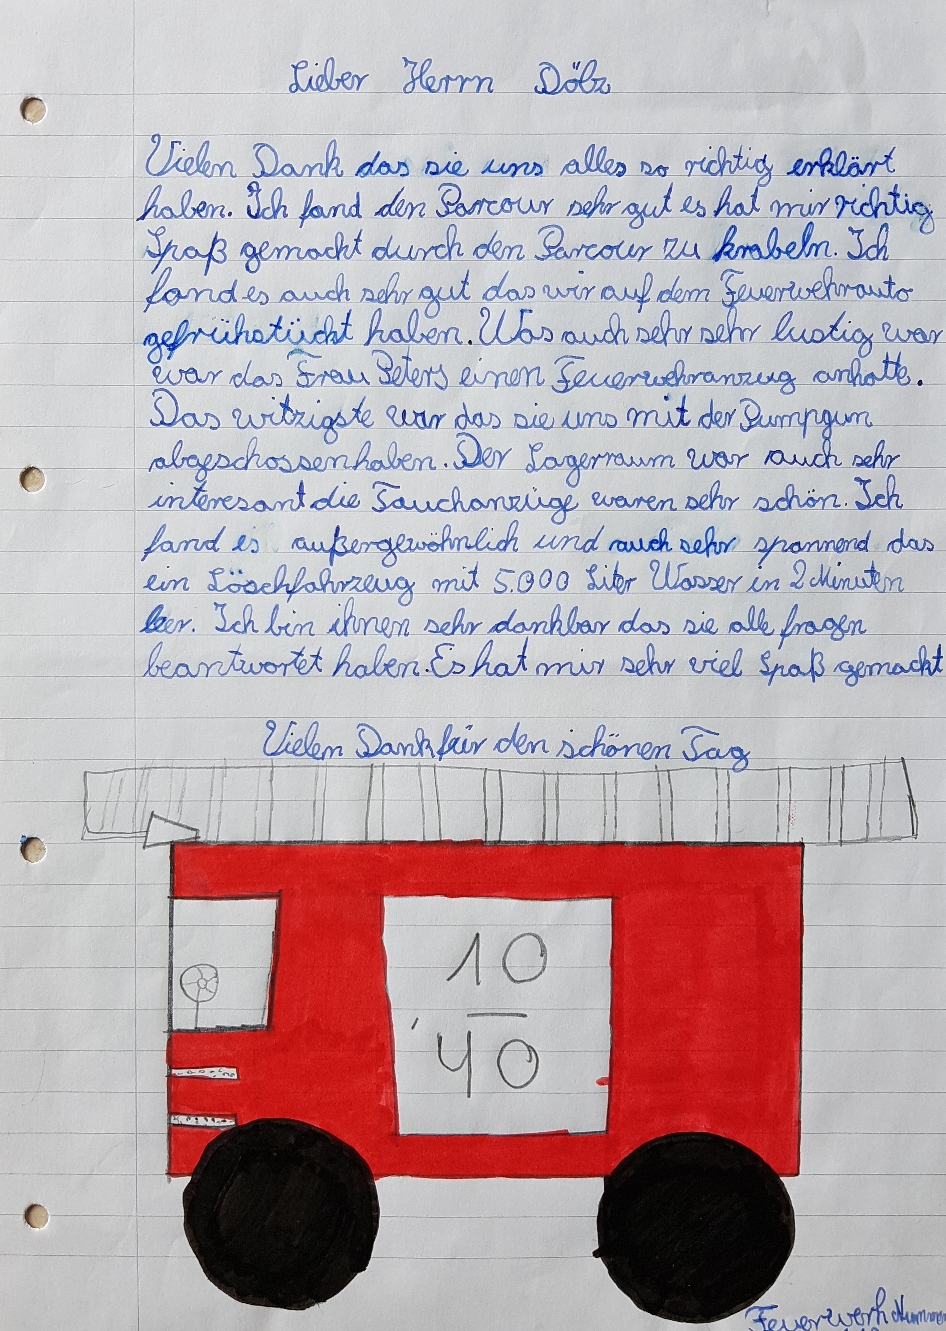 Lieber Herrn Dölz
Vielen Dank das sie uns alles so richtig erklärt
haben. Ich fand den Parcour sehr gut es hat mir richtig
Spaß gemacht durch den Parcour zu krabeln. Ich
fand es auch sehr gut das wir auf dem Feuerwehrauto
gefrühstückt haben. Was auch sehr sehr lustig war
war das Frau Peters einen Feuerwehranzug anhatte.
Das witzigste war das sie uns mit der Pumpgun
abgeschossen haben. Der Lagerraum war auch sehr
interesant die Tauchanzüge waren sehr schön. Ich
fand es außergewöhnlich und auch sehr spannend das
ein Löschfahrzeug mit 5.000 Liter Wasser in 2 Minuten
leer. Ich bin ihnen sehr dankbar das sie alle fragen
beantwortet haben. Es hat mir sehr viel Spaß gemacht
Vielen Dank für den schönen Tag
10
40